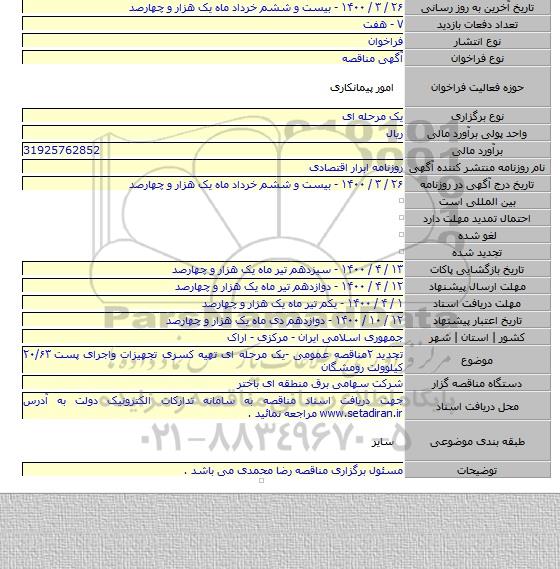 تاریخ آخرین به روز رسانی ۲۶ / ۳ / ۱۴۰۰ - بیست و ششم خرداد ماه یک هزار و چهارصد
تعداد دفعات بازدید ۷ - هفت
نوع انتشار فراخوان
نوع فراخوان آگهی مناقصه
حوزه فعالیت فراخوان امور پیمانکاری
نوع برگزاری یک مرحله ای
واحد پولی برآورد مالی ریال
برآورد مالی 31925762852
نام روزنامه منتشر کننده آگهی روزنامه ابرار اقتصادی
تاریخ درج آگهی در روزنامه ۲۶ / ۳ / ۱۴۰۰ - بیست و ششم خرداد ماه یک هزار و چهارصد
بین المللی است
احتمال تمدید مهلت دارد
لغو شده
تجدید شده
تاریخ بازگشایی پاکات ۱۳ / ۴ / ۱۴۰۰ - سیزدهم تیر ماه یک هزار و چهارصد
مهلت ارسال پیشنهاد ۱۲ / ۴ / ۱۴۰۰ - دوازدهم تیر ماه یک هزار و چهارصد
مهلت دریافت اسناد ۱ / ۴ / ۱۴۰۰ - یکم تیر ماه یک هزار و چهارصد
تاریخ اعتبار پیشنهاد ۱۲ / ۱۰ / ۱۴۰۰ - دوازدهم دی ماه یک هزار و چهارصد
کشور | استان | شهر جمهوری اسلامی ایران - مرکزی - اراک
موضوع تجدید ۲مناقصه عمومی -یک مرحله ای تهیه کسری تجهیزات واجرای پست ۲۰/۶۳
کیلوولت رومشگان
دستگاه مناقصه گزار شرکت سهامی برق منطقه ای باختر
محل دریافت اسناد جهت دریافت اسناد مناقصه به سامانه تدارکات الکترونیک دولت به آدرس
www.setadiran.ir مراجعه نمائید .
طبقه بندی موضوعی سایر
۰۲۱-۸۸۳۴۹۶۷۰-۵
توضیحات مسئول برگزاری مناقصه رضا محمدی می باشد .